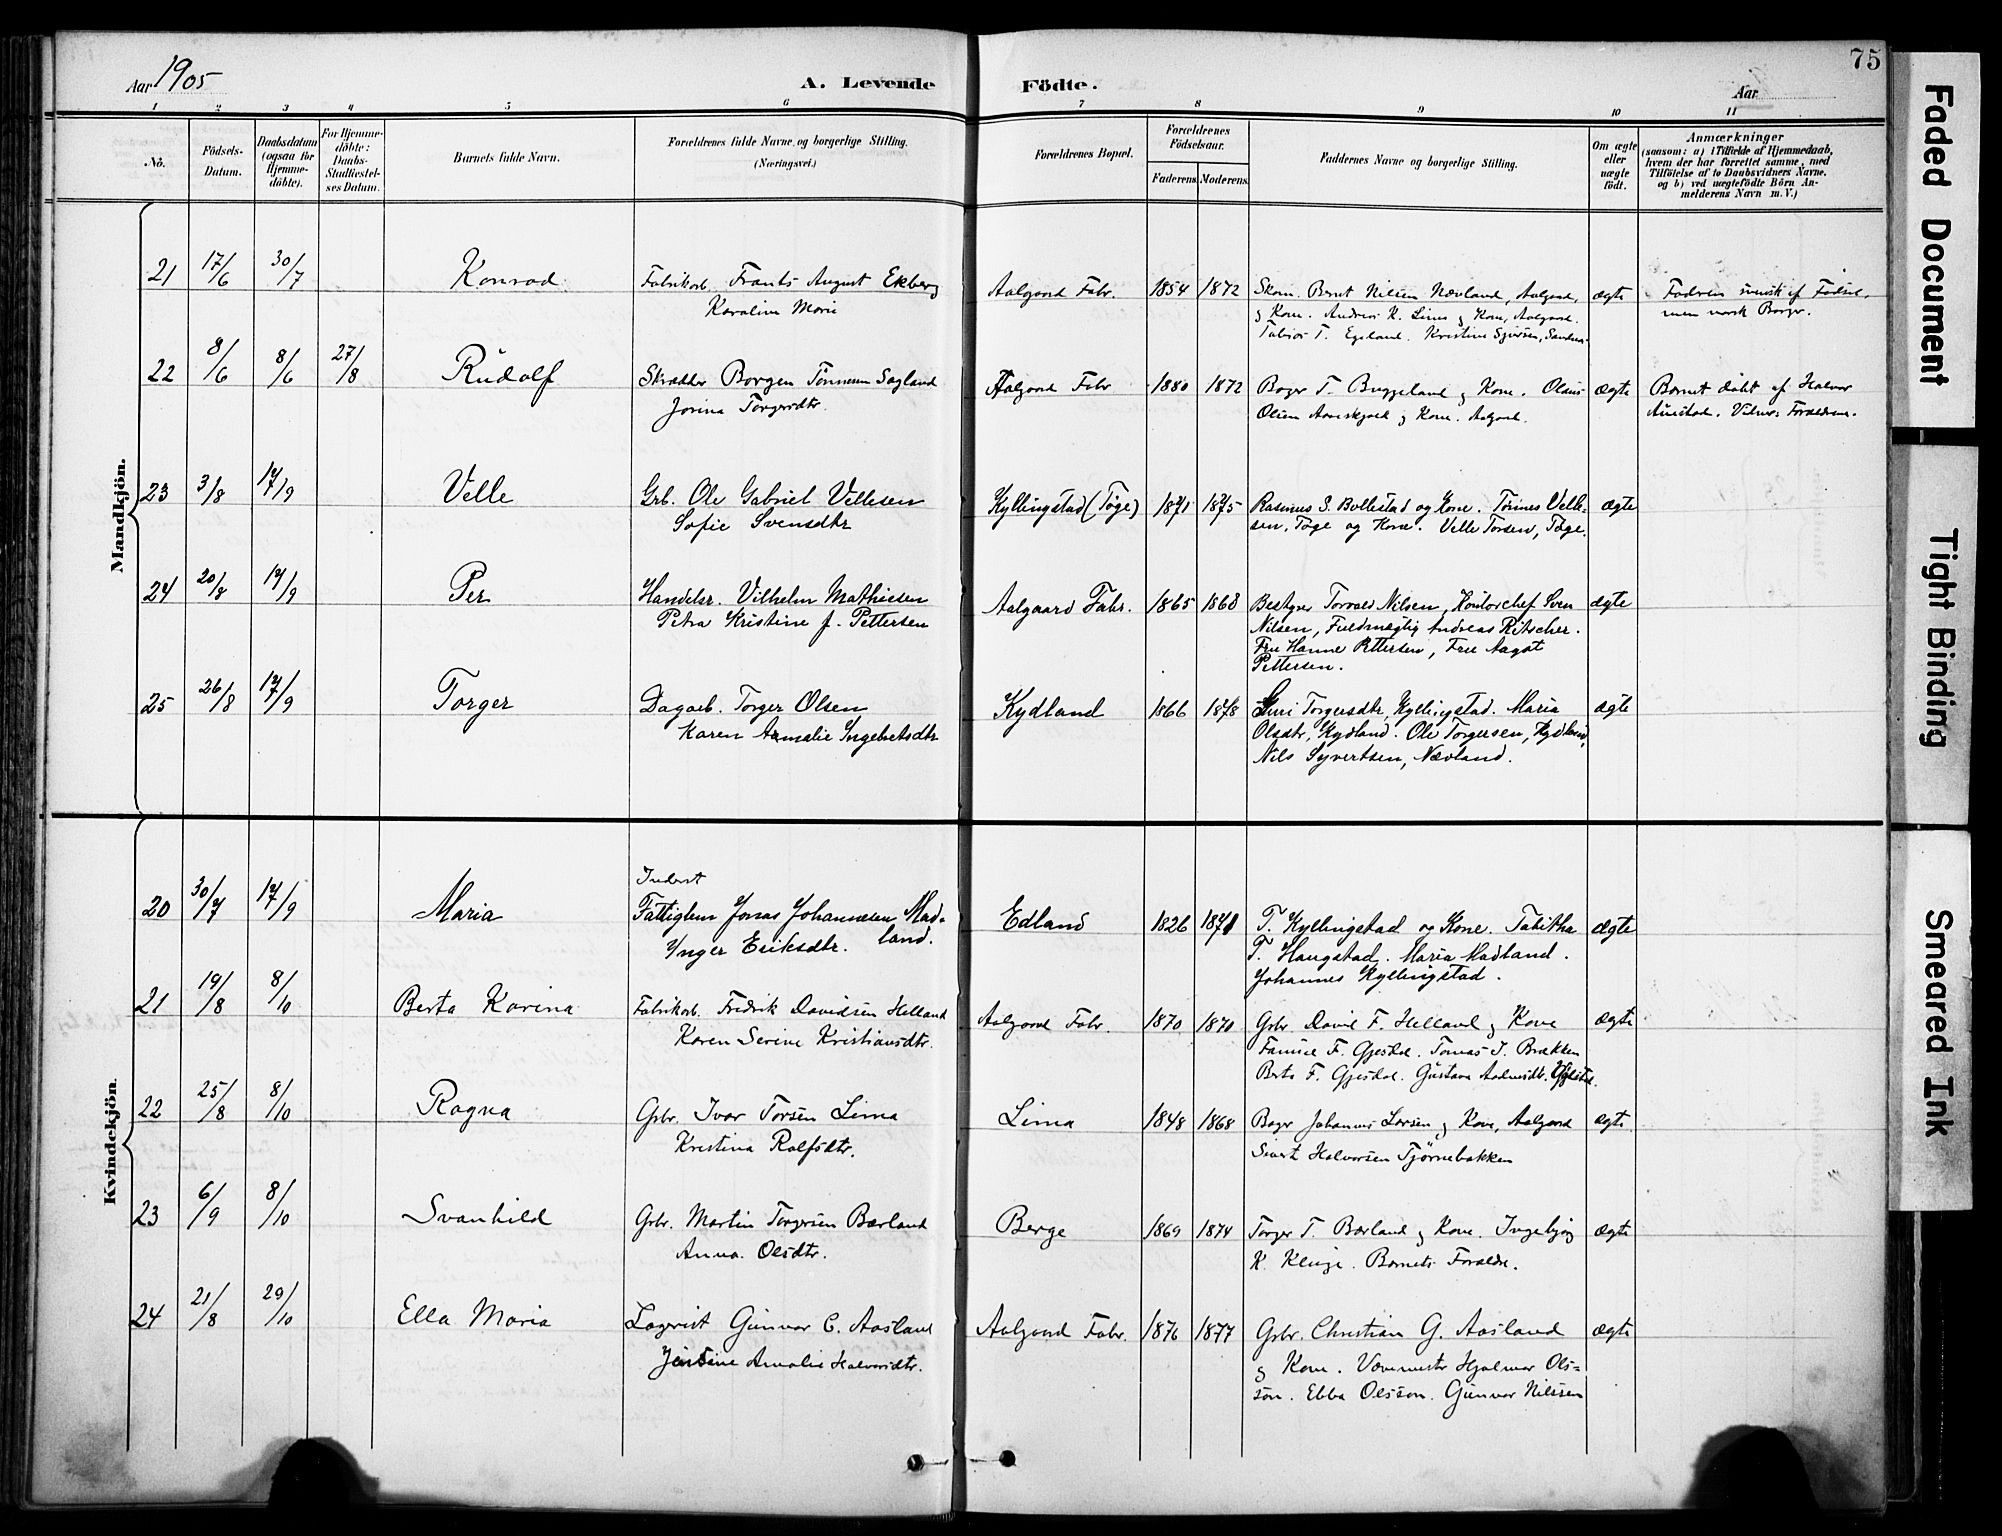 75
Aar 1905
A. Levende Födte.
Aar
1 2 3 4 5 6 7 8 9 10 11
No.
Födsels-
Datum.
Daabsdatum
(ogsaa for
Hjemme-
döbte).
For Hjemme-
döbte:
Daabs-
Stadfæstel-
ses Datum.
Barnets fulde Navn.
Forældrenes fulde Navne og borgerlige Stilling.
(Næringsvei.)
Forældrenes Bopæl.
Forældrenes
Födselsaar.
Faderens Moderens
Faddernes Navne og borgerlige Stilling.
Om ægte
eller
uægte
födt.
Anmærkninger
(saasom: a) i Tilfælde af Hjemmedaab,
hvem der har forrettet samme, med
Tilföielse af to Daabsvidners Navne,
og b) ved uægtefödte Börn An-
melderens Navn m. V.)
Mandkjön.
21 17/6 30/7 Konrad Fabrikarb. Frants August Ekberg Aalgaard Fabr. 1854 1872 Bernt Nilsen Nævland, Aalgaard, ægte Faderen svensk af Fødsel,
Karoline Marie & Kone. Andreas K. Lima & Kone, Aalgaard. men norsk Borger.
Tobias T. Egeland. Kristine
22 8/6 8/6 27/8 Rudolf Skrædder Borgen Tønnesen Sagland Aalgaard Fabr 1880 1872 Bager T. Byggeland & Kone. Olaus ægte Barnet døbt af Halvor
Jorina Torgersdtr. Olsen & Kone. Aalgaard. Forældrene.
23 3/8 17/9 Velle Grb. Ole Gabriel Vellesen Kyllingstad (Tøge) 1871 1875 Rasmus S. Bollestad og Kone. Tønnes Velle- ægte
Sofie Svensdtr sen, Tøge og Kone. Velle Torsen, Tøge.
24 20/8 17/9 Per Handelsr. Vilhelm Mathiesen Aalgaard Fabr. 1865 1868 Bestyrer Torvald Nilsen, Kontorchef Sven ægte
Petra Kristine f. Pettersen Nilsen, Fuldmægtig Andreas Ritscher.
Fru Hanne Pettersen, Fru Aagot
Pettersen.
25 26/8 17/9 Torger Dagarb. Torger Olsen Kydland 1866 1878 Guri Torgersdtr, Kyllingstad. Maria ægte
Karen Amalie Ingebretsdtr Olsdtr, Kydland. Ole Torgersen, Kydland,
Nils Syvertsen, Nævland.
Kvindekjön.
Inderst
20 30/7 17/9 Maria Fattiglem Jonas Johannesen Mad- Edland 1826 1871 T. Kyllingstad og Kone. Tabitha ægte
Ynger Eriksdtr. land. T. Haugstad. Maria Madland.
Johannes Kyllingstad.
21 19/8 8/10 Berta Karina Fabrikarb. Fredrik Davidsen Helland Aalgaard Fabr. 1870 1870 Grbr. David F. Helland & Kone ægte
Karen Serine Kristiansdtr. F. Gjesdal. Tomas J. Brækken
Berta F. Gjesdal. Gustava
22 25/8 8/10 Ragna Grbr. Ivar Torsen Lima Lima 1848 1868 Bager Johannes Larsen & Kone, Aalgaard ægte
Kristina Rolfsdtr. Sivert Halvorsen Tjørnebakken
23 6/9 8/10 Svanhild Grbr. Martin Torgersen Bærland Berge 1869 1874 Torger T. Bærland & Kone. Ingebjørg ægte
Anna Olsdtr. K. Kluge. Barnets Forældre.
24 21/8 29/10 Ella Maria Lagerist Gunvar C. Aasland Aalgaard Fabr. 1876 1877 Grbr. Christian G. Aasland ægte
Amalie Halvorsdtr. & Kone. Vævemester Hjalmar Ols-
son. Ebba Olsson. Gunvor Nilssen
Faded Document
Tight Binding
Smeared Ink